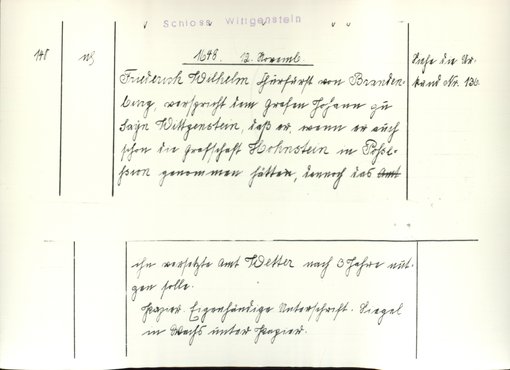 Schloss Wittgenstein
148
1648. 12. Novemb.
Friederich Wilhelm, Churfürst von Branden-
burg, verspricht dem Grafen Johann zu
Sayn Wittgenstein, daß er, wenn er auch
schon die Grafschaft Hohnstein in Posse-
ssion genommen hätten, dennoch das Amt
Siehe die Ur-
kund Nr. 136
ihn versetzte Amt Wetter nach 3 Jahre nut-
zen solle.
Papier. Eigenhändige Unterschrift. Siegel
in Wachs unter Papier.